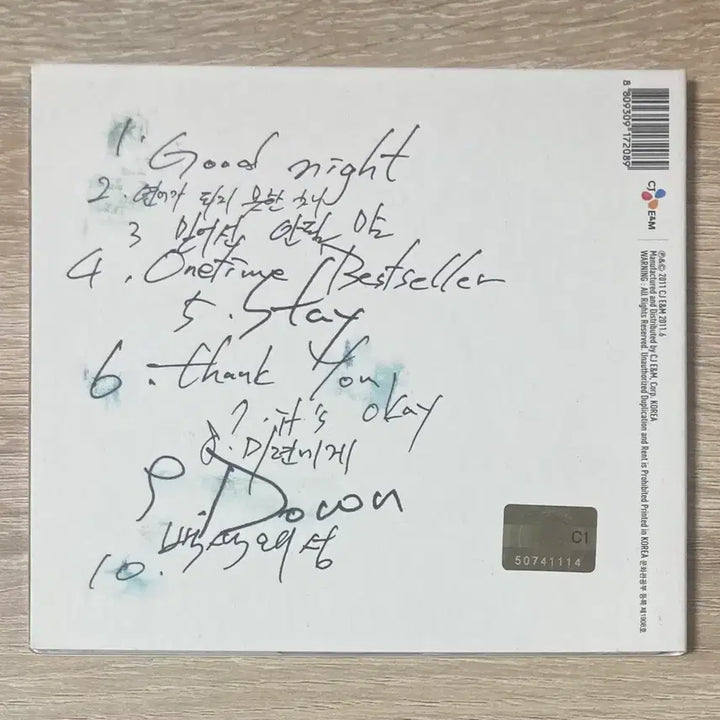 1. Good night
2. 연애가 되지 못한
3 믿어선 안될 말
4. Onetime Bestseller
5. Stay
6. thank You
7. it's okay
8. 미련에게
9 Down
10. 백색의 성
8 809309 172089
CJ E&M
℗&© 2011 CJ E&M 2011.6
Manufactured and Distributed by CJ E&M, Corp. KOREA
WARNING : All Rights Reserved. Unauthorized Duplication and Rent is Prohibited Printed in KOREA 문화관광부 등록 제1908호
C1
50741114